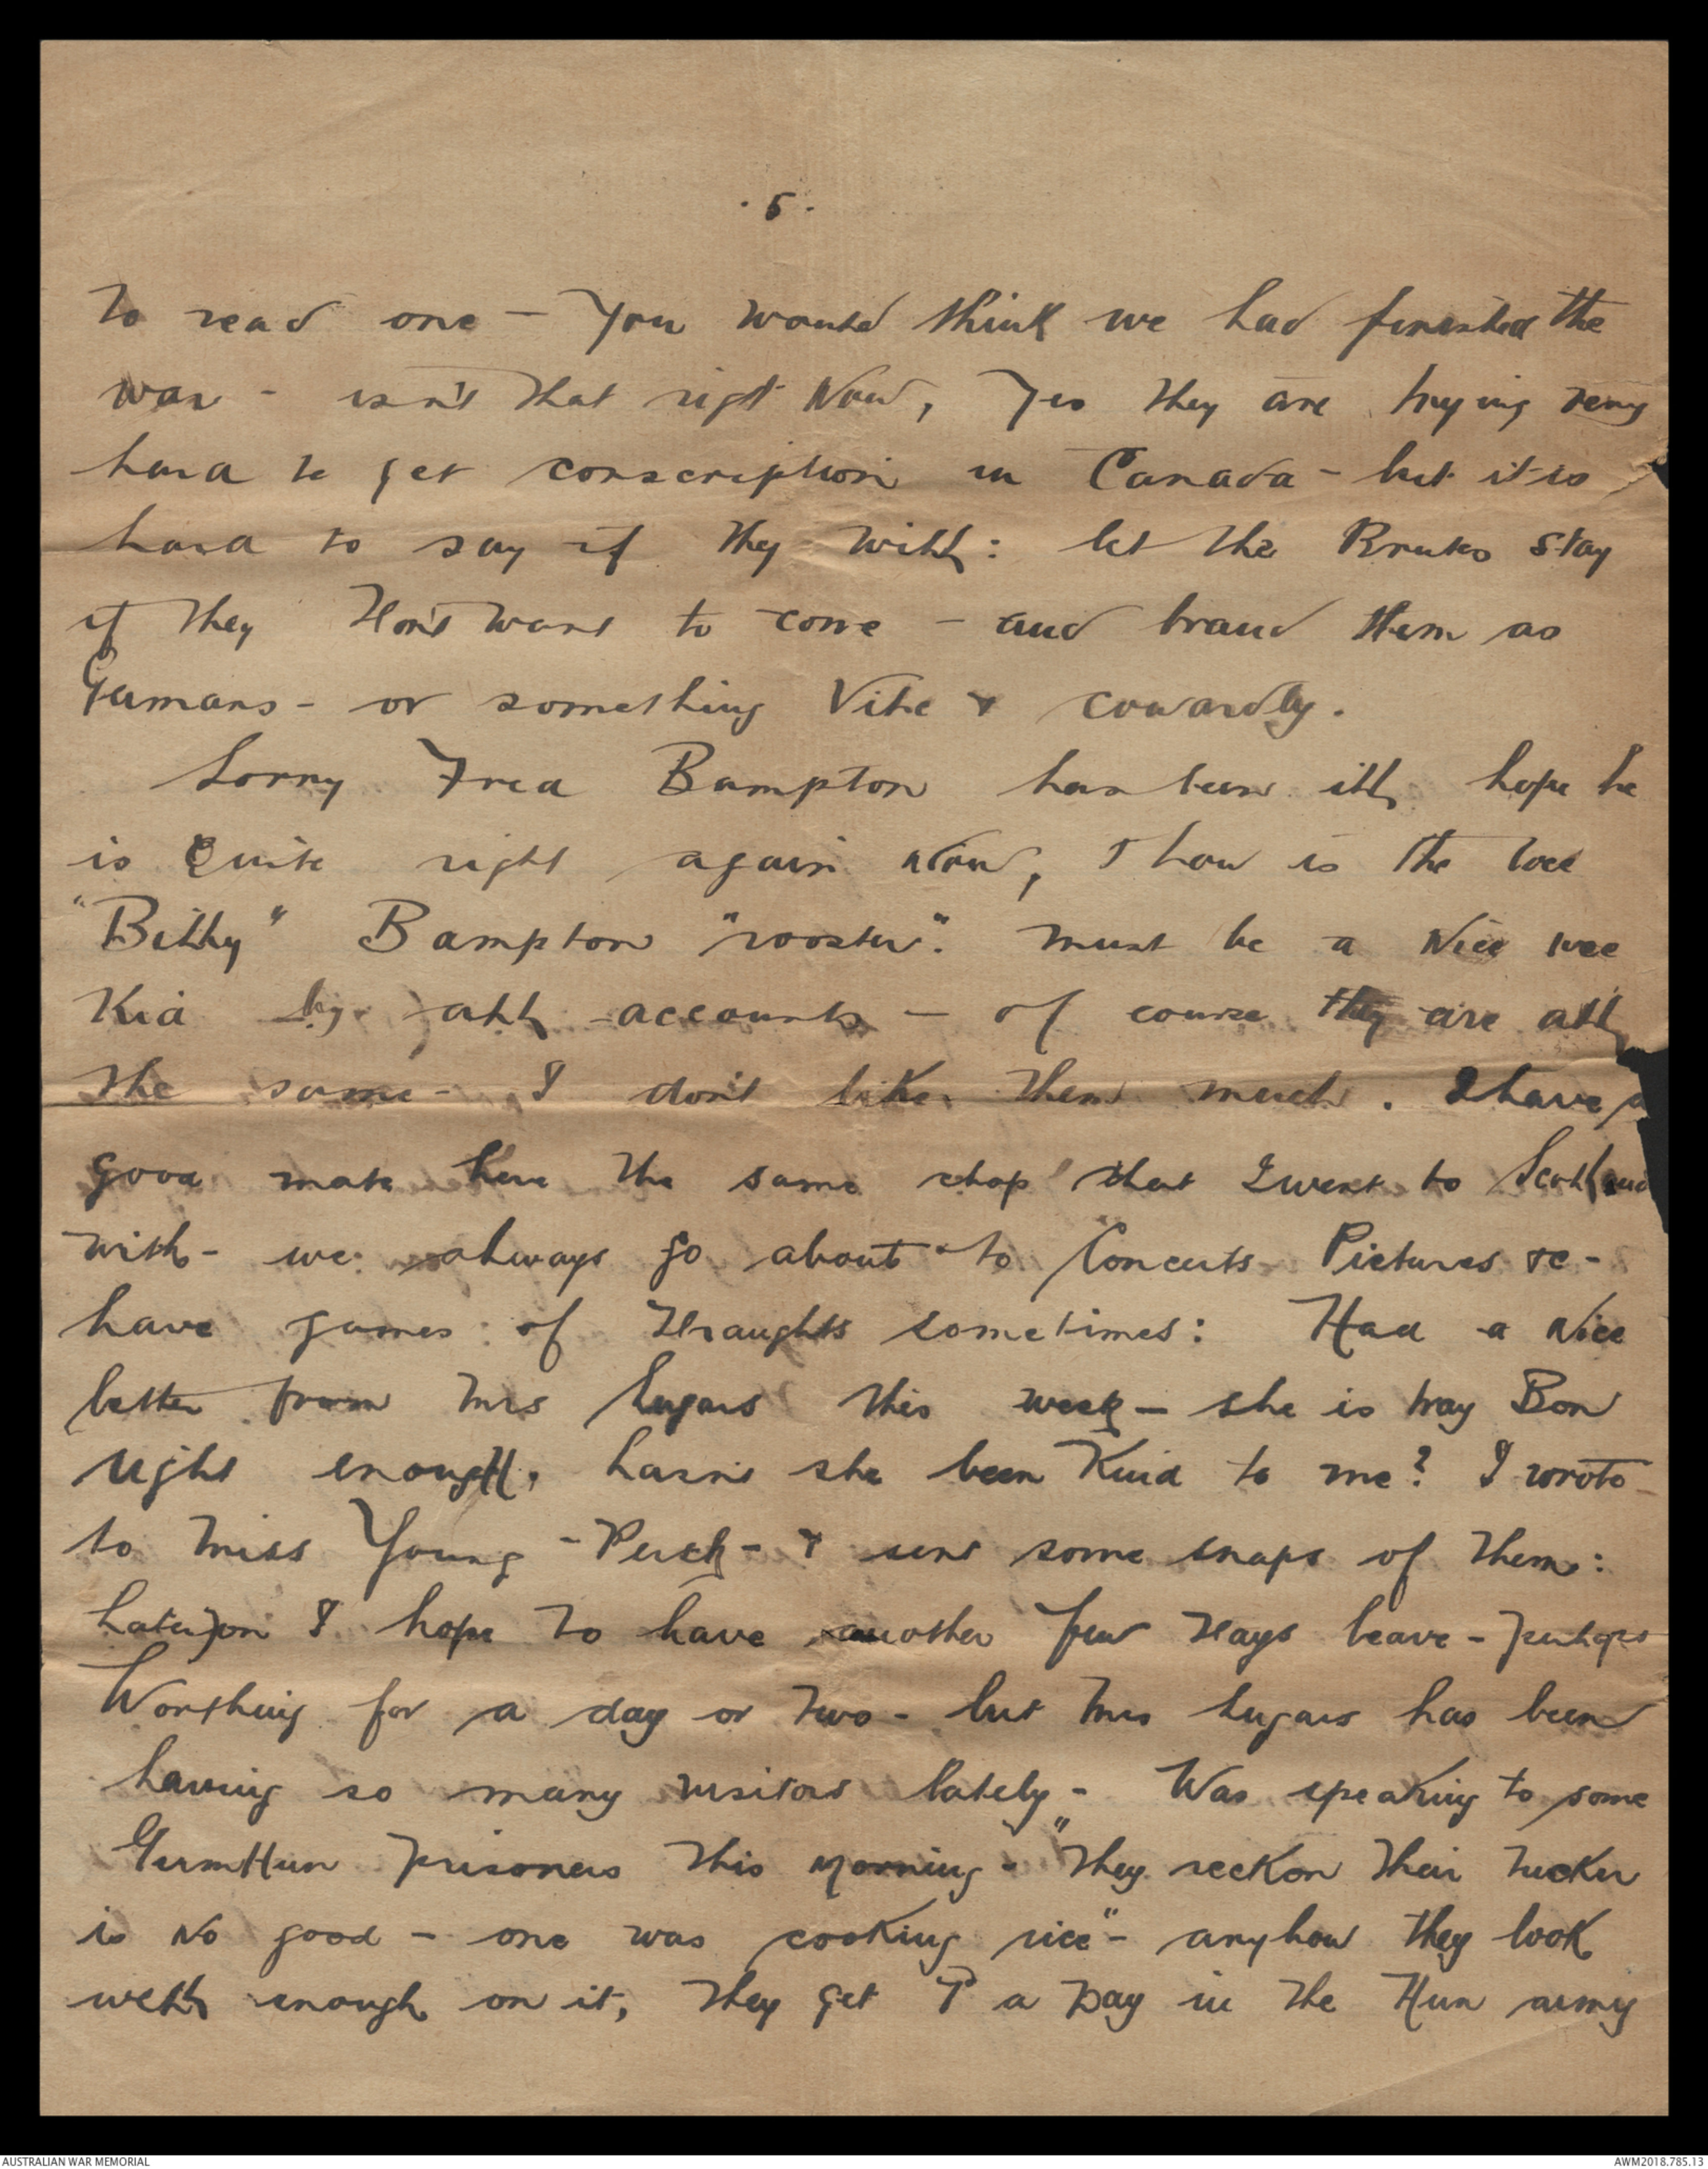 . 5 .
to read one - You would think we had finished the
war - isn't that right now, Yes they are trying very
hard to get conscription in Canada - but it is
hard to say if they will: let the Brutes stay
if they don't want to come - and brand them as
Germans - or something Vile & cowardly.
Sorry Fred Bampton has been ill, hope he
is Quite right again now, & how is the wee
"Billy" Bampton "rooster". must be a Nice wee
Kid by all accounts - of course they are all
the same - I don't like them much. I have a
good mate here the same chap that I went to Scotland
with - we always go about to Concerts Pictures &c -
have games of Draughts sometimes: Had a Nice
letter from Mrs Lugars this week - she is tray Bon
right enough, hasn't she been Kind to me? I wrote
to Miss Young - Perth - & sent some snaps of them:
Later on I hope to have another few days leave - perhaps
Worthing for a day or two - but Mrs Lugars has been
having so many visitors lately - Was speaking to some
GermHun prisoners this morning - "They reckon their tucker
is No good - one was cooking rice" - anyhow they look
well enough on it, They get a Day in the Hun army
AUSTRALIAN WAR MEMORIAL
AWM2018.785.13